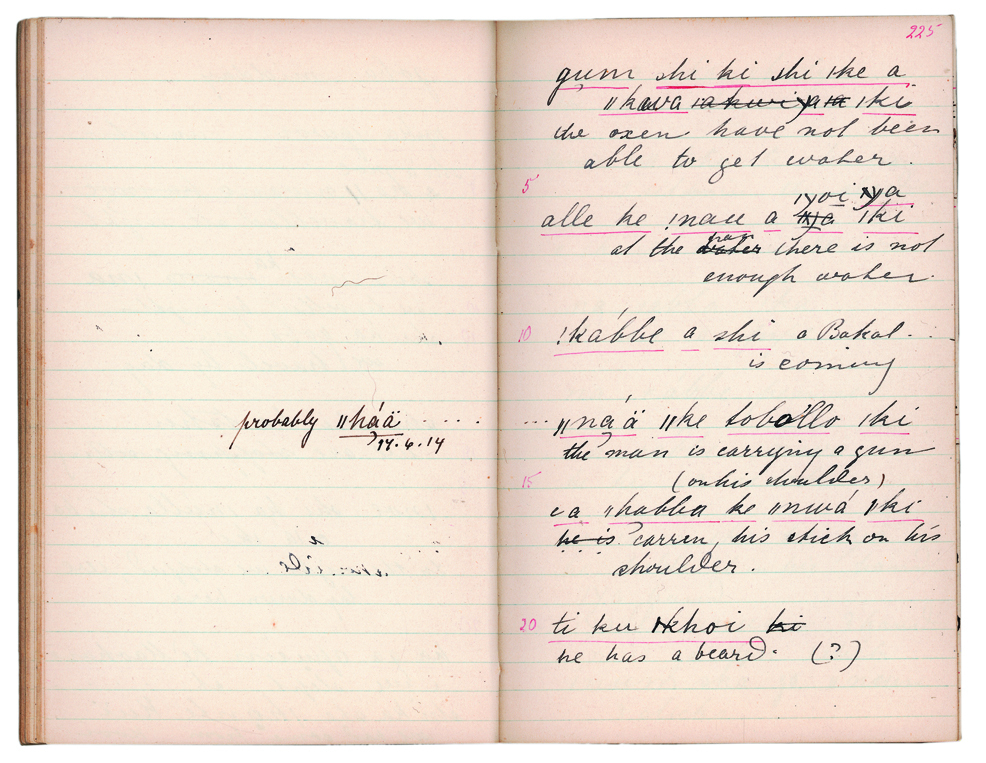 probably ǁkáä
17.6.14
225
gum shi ki shi ǀke a
ǁkava ǀki
the oxen have not been
able to get water.
5
ǀya
alle he ǃnau a ǀki
at the there is not
enough water.
10 ǃkábbe a shi a Bakal
is coming
ǁnáä ǁke tobollo ǀki
the man is carrying a gun
15 (on his shoulder)
ǁhabba ke ǁnwá ǀki
he is carren, his stick on his
shoulder.
20 ti ku ǀkhoi ki
he has a beard. (?)